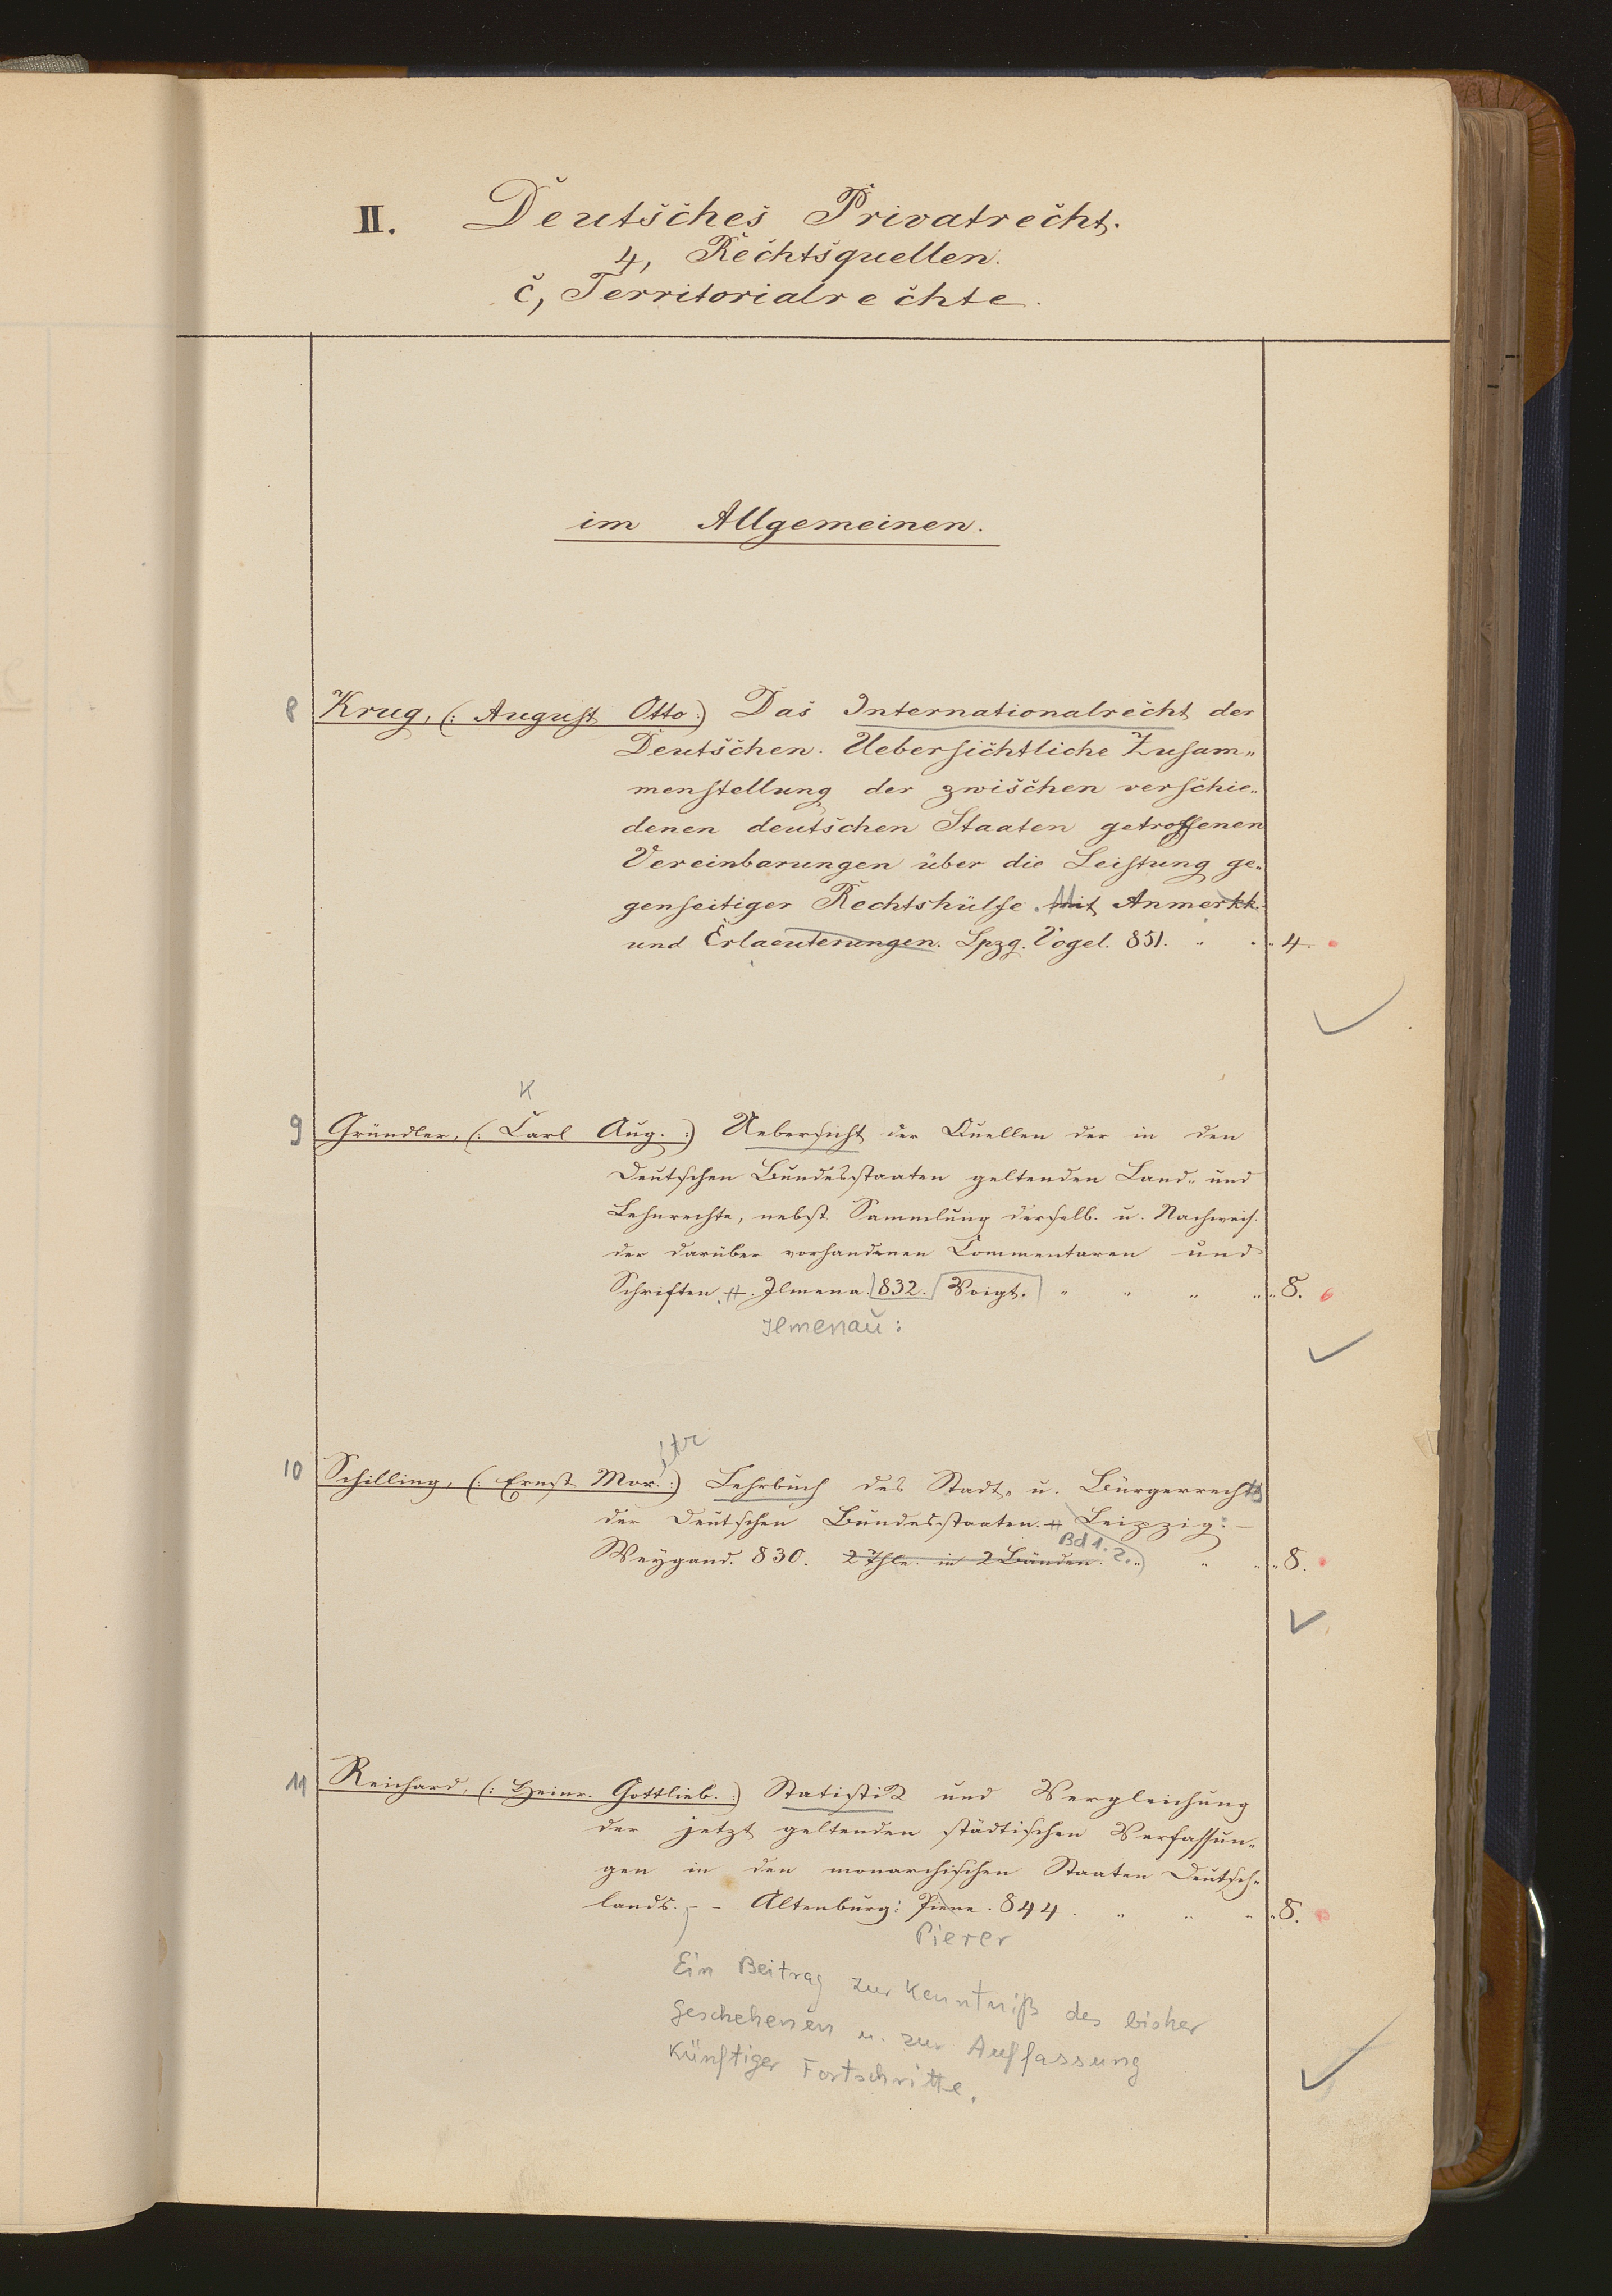 II. Deutsches Privatrecht.
4, Rechtsquellen.
c, Territorialrechte.
im Allgemeinen.
8 Krug, (: August Otto :) Das Internationalrecht der
Deutschen. Uebersichtliche Zusam„
menstellung der zwischen verschie„
denen deutschen Staaten getroffenen
Vereinbarungen über die Leistung ge„
genseitiger Rechtshülfe. Mit Anmerkk.
und Erlaeuterungen. Lpzg. Vogel. 851. „ „ 4.
K
9 Gründler, (: Carl Aug. :) Uebersicht der Quellen der in den
Deutschen Bundesstaaten geltenden Land- und
Lehnrechte, nebst Sammlung derselb. u. Nachweis.
der darüber vorhandenen Commentaren und
Schriften. Ilmena. 832. Voigt. „ „ „ „ 8.
Ilmenau:
10 Schilling, (: Ernst Mor. :) Lehrbuch des Stadt- u. Bürgerrechts
der Deutschen Bundesstaaten. Leipzig: –
Bd 1. 2.
Weygand. 830. 2 Thle. in 2 Bänden. „ „ „ 8.
11 Reichard, (: Heinr. Gottlieb. :) Statistik und Vergleichung
der jetzt geltenden städtischen Verfassun„
gen in den monarchischen Staaten Deutsch„
lands. – – Altenburg: Piere. 844. „ „ „ 8.
Pierer
Ein Beitrag zur Kenntniß des bisher
Geschehenen u. zur Auffassung
Künftiger Fortschritte.